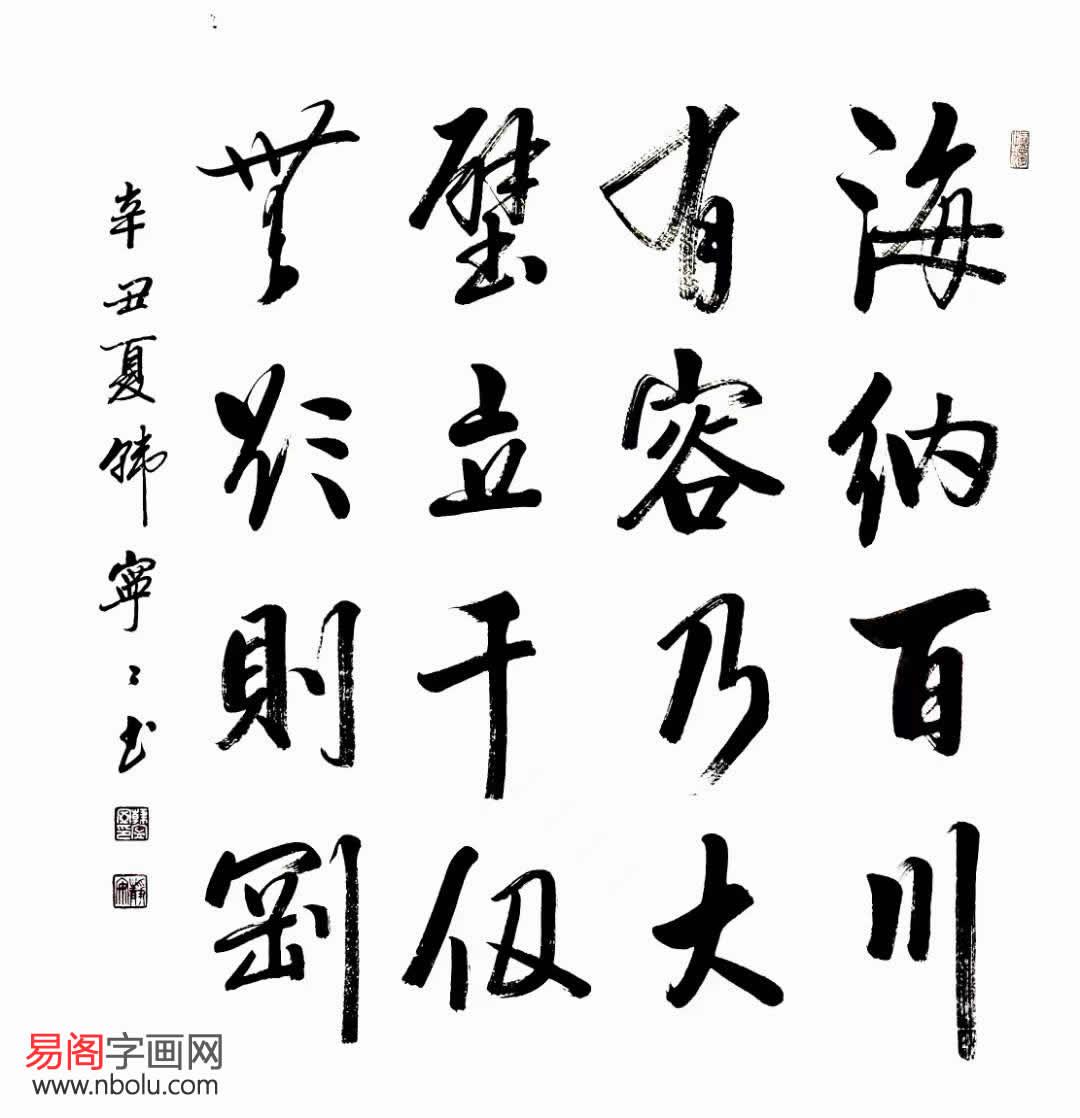 海納百川
有容乃大
壁立千仞
無欲則剛
辛丑夏韩寧寧书
易阁字画网
www.nbolu.com